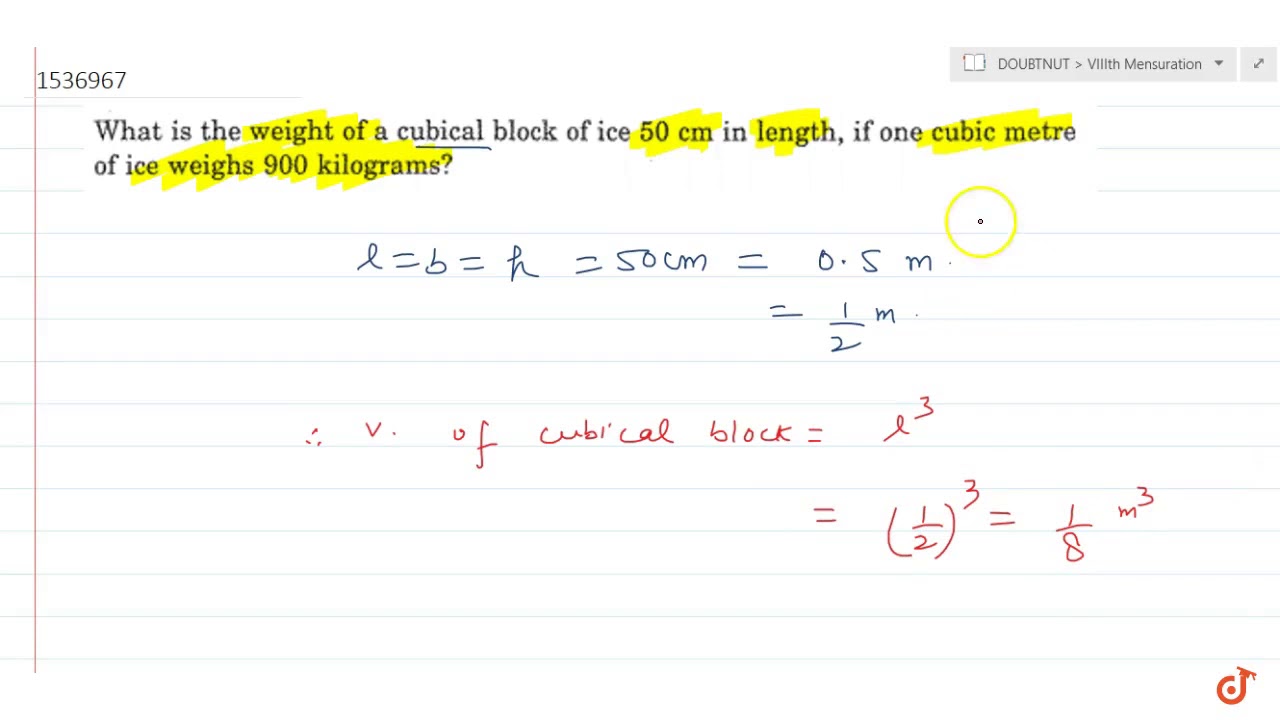 DOUBTNUT > VIIIth Mensuration
1536967
What is the weight of a cubical block of ice 50 cm in length, if one cubic metre
of ice weighs 900 kilograms?
l = b = h = 50 cm = 0.5 m.
= 1/2 m.
∴ V. of cubical block = l³
= (1/2)³ = 1/8 m³